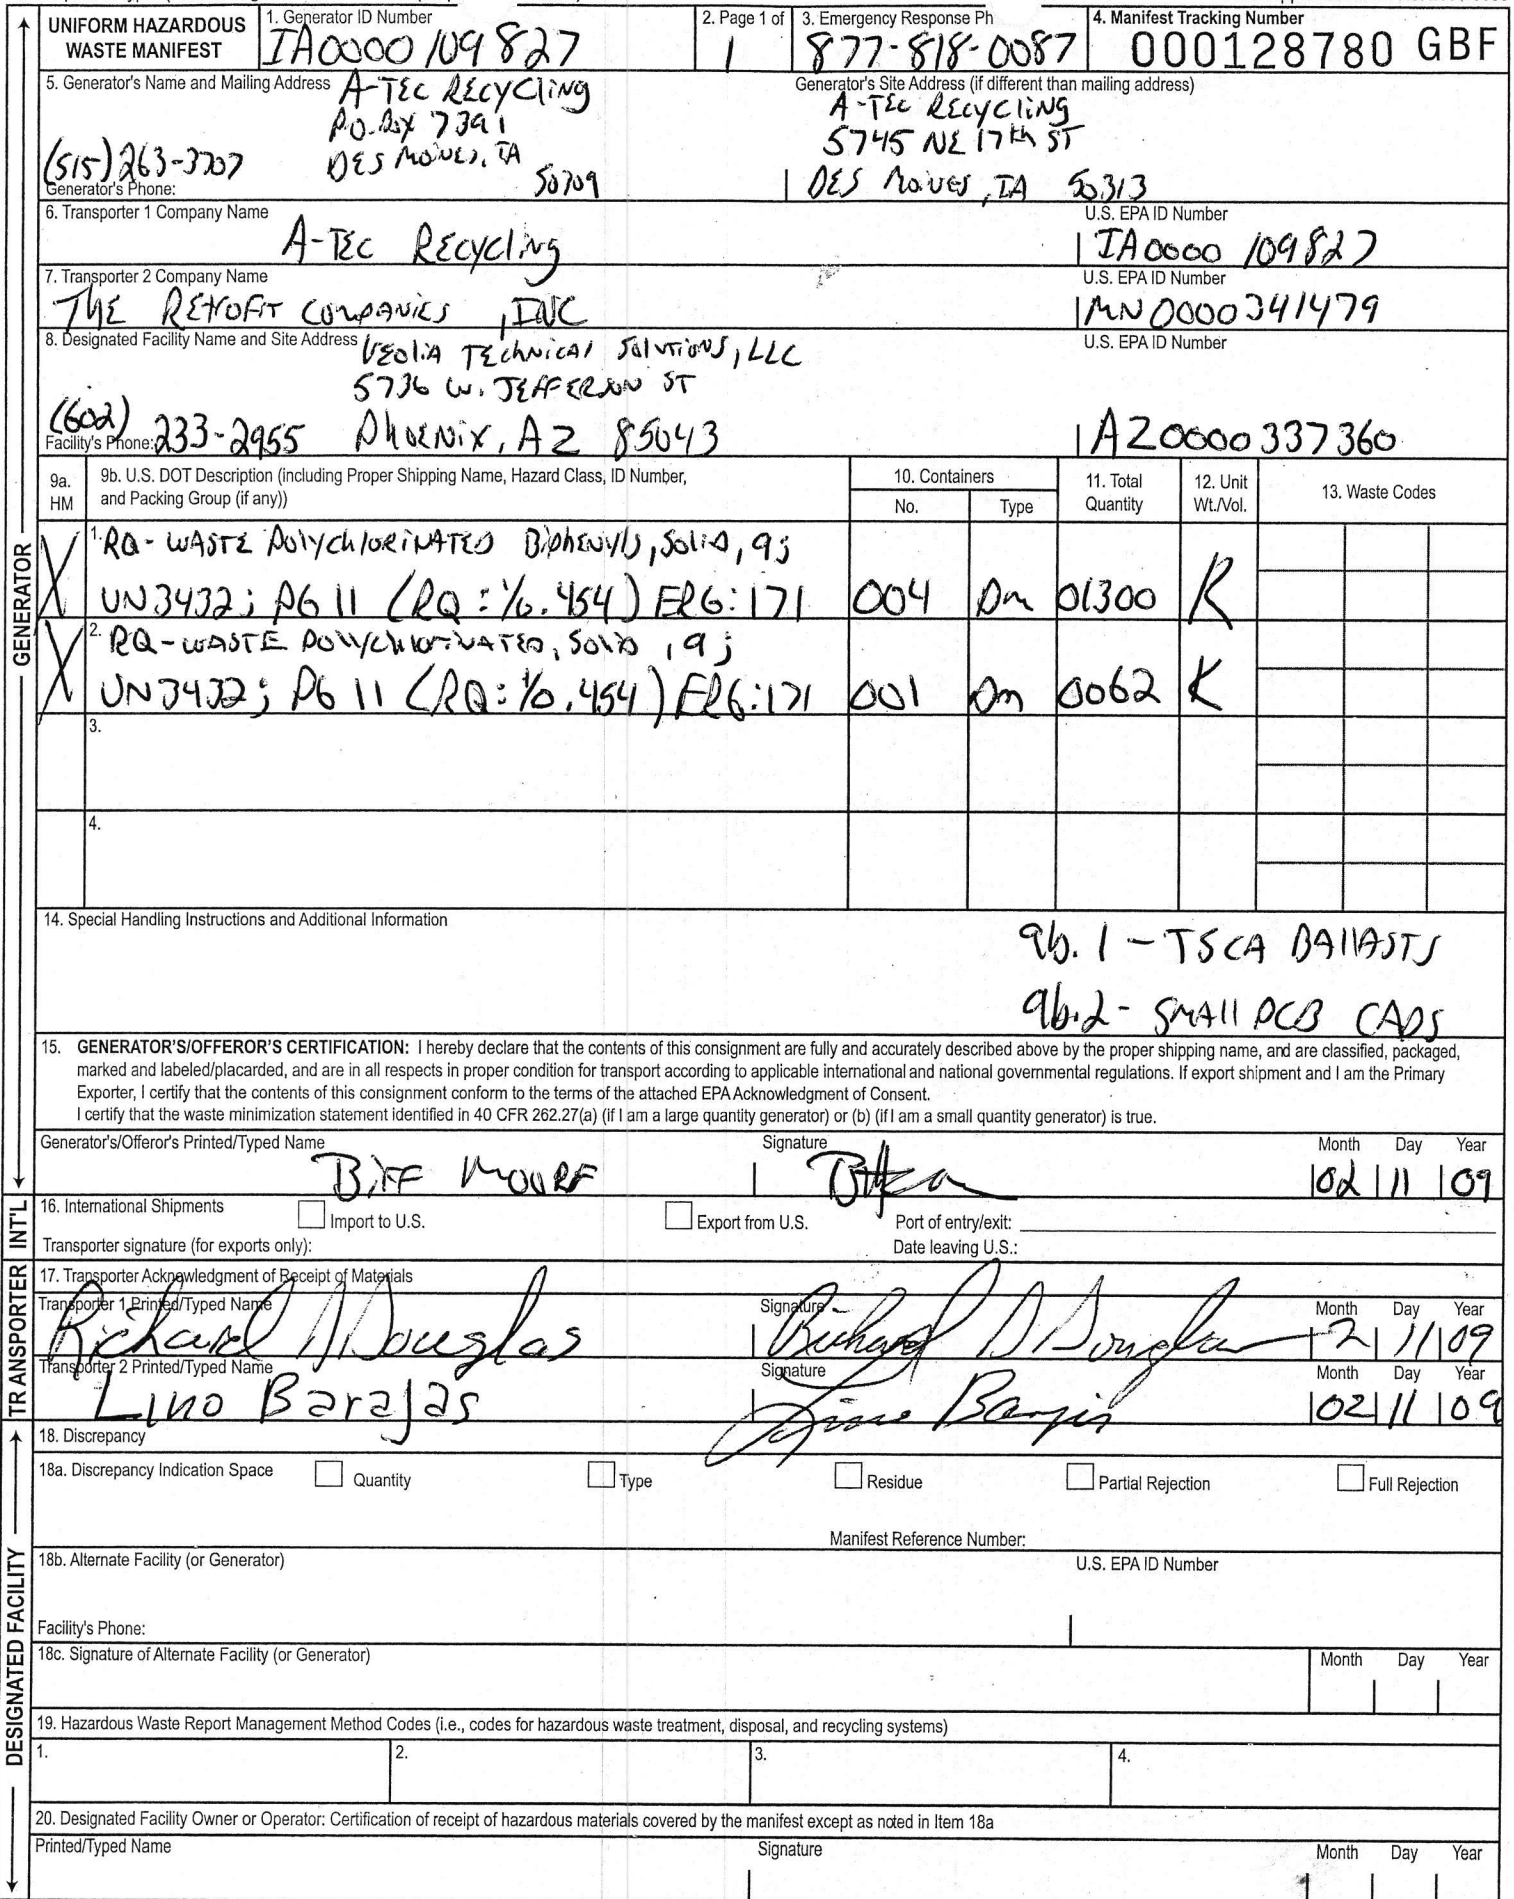 UNIFORM HAZARDOUS WASTE MANIFEST
1. Generator ID Number
IA0000109827
2. Page 1 of
1
3. Emergency Response Ph
877-818-0087
4. Manifest Tracking Number
000128780 GBF
5. Generator's Name and Mailing Address
A-TEC RECYCLING
P.O. BOX 7391
DES MOINES, IA
50309
(515) 263-3707
Generator's Phone:
Generator's Site Address (if different than mailing address)
A-TEC RECYCLING
5745 NE 17th ST
DES MOINES, IA 50313
6. Transporter 1 Company Name
A-TEC RECYCLING
U.S. EPA ID Number
IA0000109827
7. Transporter 2 Company Name
THE RETROFIT COMPANIES, INC
U.S. EPA ID Number
MN0000341479
8. Designated Facility Name and Site Address
VEOLIA TECHNICAL SOLUTIONS, LLC
5736 W. JEFFERSON ST
PHOENIX, AZ 85043
(602) 233-2955
Facility's Phone:
U.S. EPA ID Number
AZ0000337360
9a. HM
9b. U.S. DOT Description (including Proper Shipping Name, Hazard Class, ID Number,
and Packing Group (if any))
10. Containers
No.
Type
11. Total Quantity
12. Unit Wt./Vol.
13. Waste Codes
X
1. RQ-WASTE POLYCHLORINATED BIPHENYLS, SOLID, 9;
UN3432; PG II (RQ: 1/0.454) ERG:171
004
DM
01300
K
X
2. RQ-WASTE POLYCHLORINATED, SOLID, 9;
UN3432; PG II (RQ: 1/0.454) ERG:171
001
DM
0062
K
3.
4.
14. Special Handling Instructions and Additional Information
9b.1 - TSCA BALLASTS
9b.2 - SMALL PCB CAPS
15. GENERATOR'S/OFFEROR'S CERTIFICATION: I hereby declare that the contents of this consignment are fully and accurately described above by the proper shipping name, and are classified, packaged,
marked and labeled/placarded, and are in all respects in proper condition for transport according to applicable international and national governmental regulations. If export shipment and I am the Primary
Exporter, I certify that the contents of this consignment conform to the terms of the attached EPA Acknowledgment of Consent.
I certify that the waste minimization statement identified in 40 CFR 262.27(a) (if I am a large quantity generator) or (b) (if I am a small quantity generator) is true.
Generator's/Offeror's Printed/Typed Name
BIFF MOORE
Signature
Month Day Year
02 11 09
16. International Shipments
Import to U.S.
Export from U.S.
Port of entry/exit:
Transporter signature (for exports only):
Date leaving U.S.:
17. Transporter Acknowledgment of Receipt of Materials
Transporter 1 Printed/Typed Name
Richard D Douglas
Signature
Richard D Douglas
Month Day Year
2 11 09
Transporter 2 Printed/Typed Name
Lino Barajas
Signature
Lino Barajas
Month Day Year
02 11 09
18. Discrepancy
18a. Discrepancy Indication Space
Quantity
Type
Residue
Partial Rejection
Full Rejection
Manifest Reference Number:
18b. Alternate Facility (or Generator)
U.S. EPA ID Number
Facility's Phone:
18c. Signature of Alternate Facility (or Generator)
Month Day Year
19. Hazardous Waste Report Management Method Codes (i.e., codes for hazardous waste treatment, disposal, and recycling systems)
1.
2.
3.
4.
20. Designated Facility Owner or Operator: Certification of receipt of hazardous materials covered by the manifest except as noted in Item 18a
Printed/Typed Name
Signature
Month Day Year
GENERATOR
INT'L
TRANSPORTER
DESIGNATED FACILITY